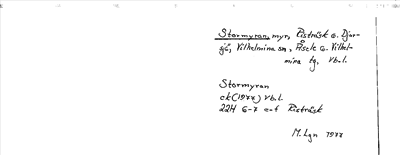 Stormyran, myr, Riströsk o. Djur-
sjö, Vilhelmina sn, Åsele o. Vilhel-
mina tg, Vb.l.
Stormyran
ek (1977) Vb.l.
22H 6-7 e-f Riströsk
M. Lgn 1977